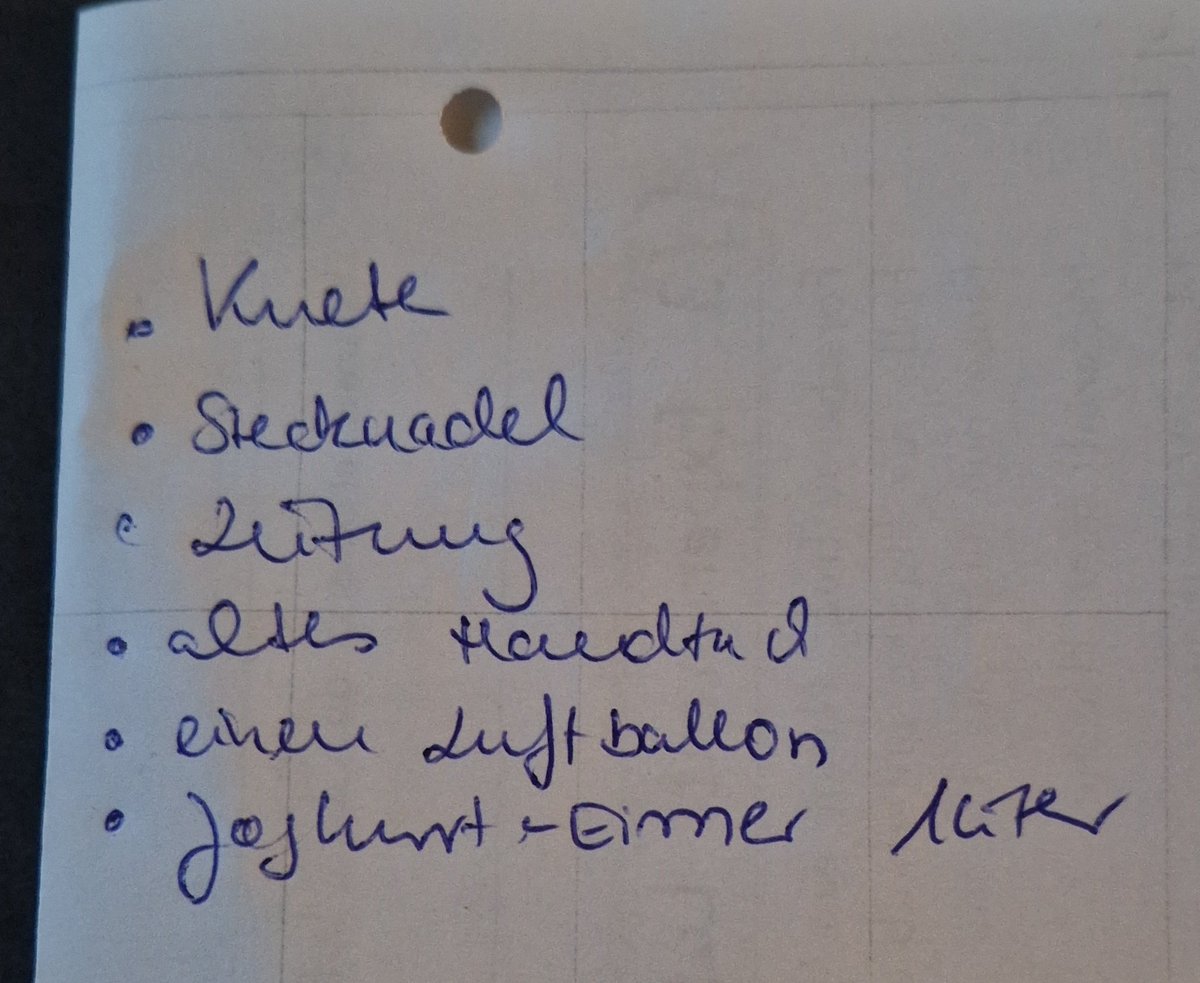 • Knete
• Stecknadel
• Zeitung
• altes Handtuch
• einen Luftballon
• Joghurt-Eimer 1 Liter